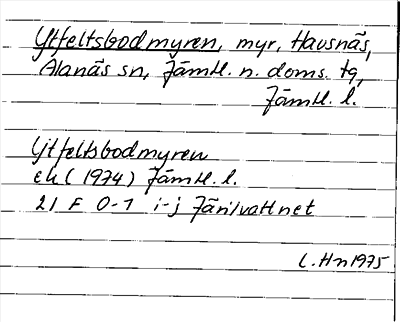 Ytfeltsbodmyren, myr, Havsnäs,
Alanäs sn, Jämtl. n. doms. tg,
Jämtl. l.
Ytfeltsbodmyren
ek (1974) Jämtl. l.
21 F 0-1 i-j Järilvattnet
C.Hn 1975